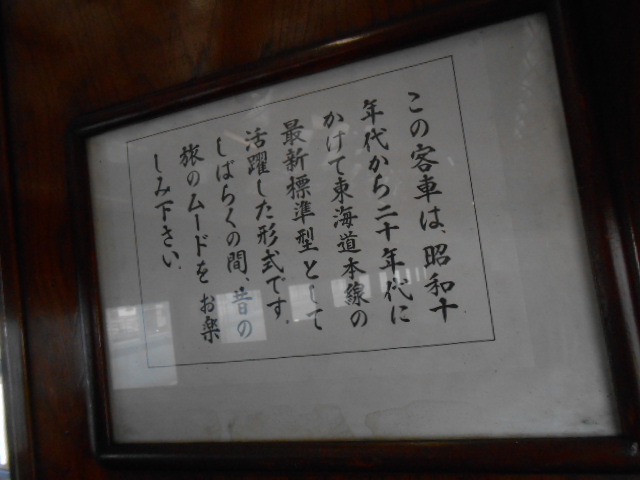 この客車は、昭和十
年代から二十年代に
かけて東海道本線の
最新標準型として
活躍した形式です.
しばらくの間、昔の
旅のムードをお楽
しみ下さい.